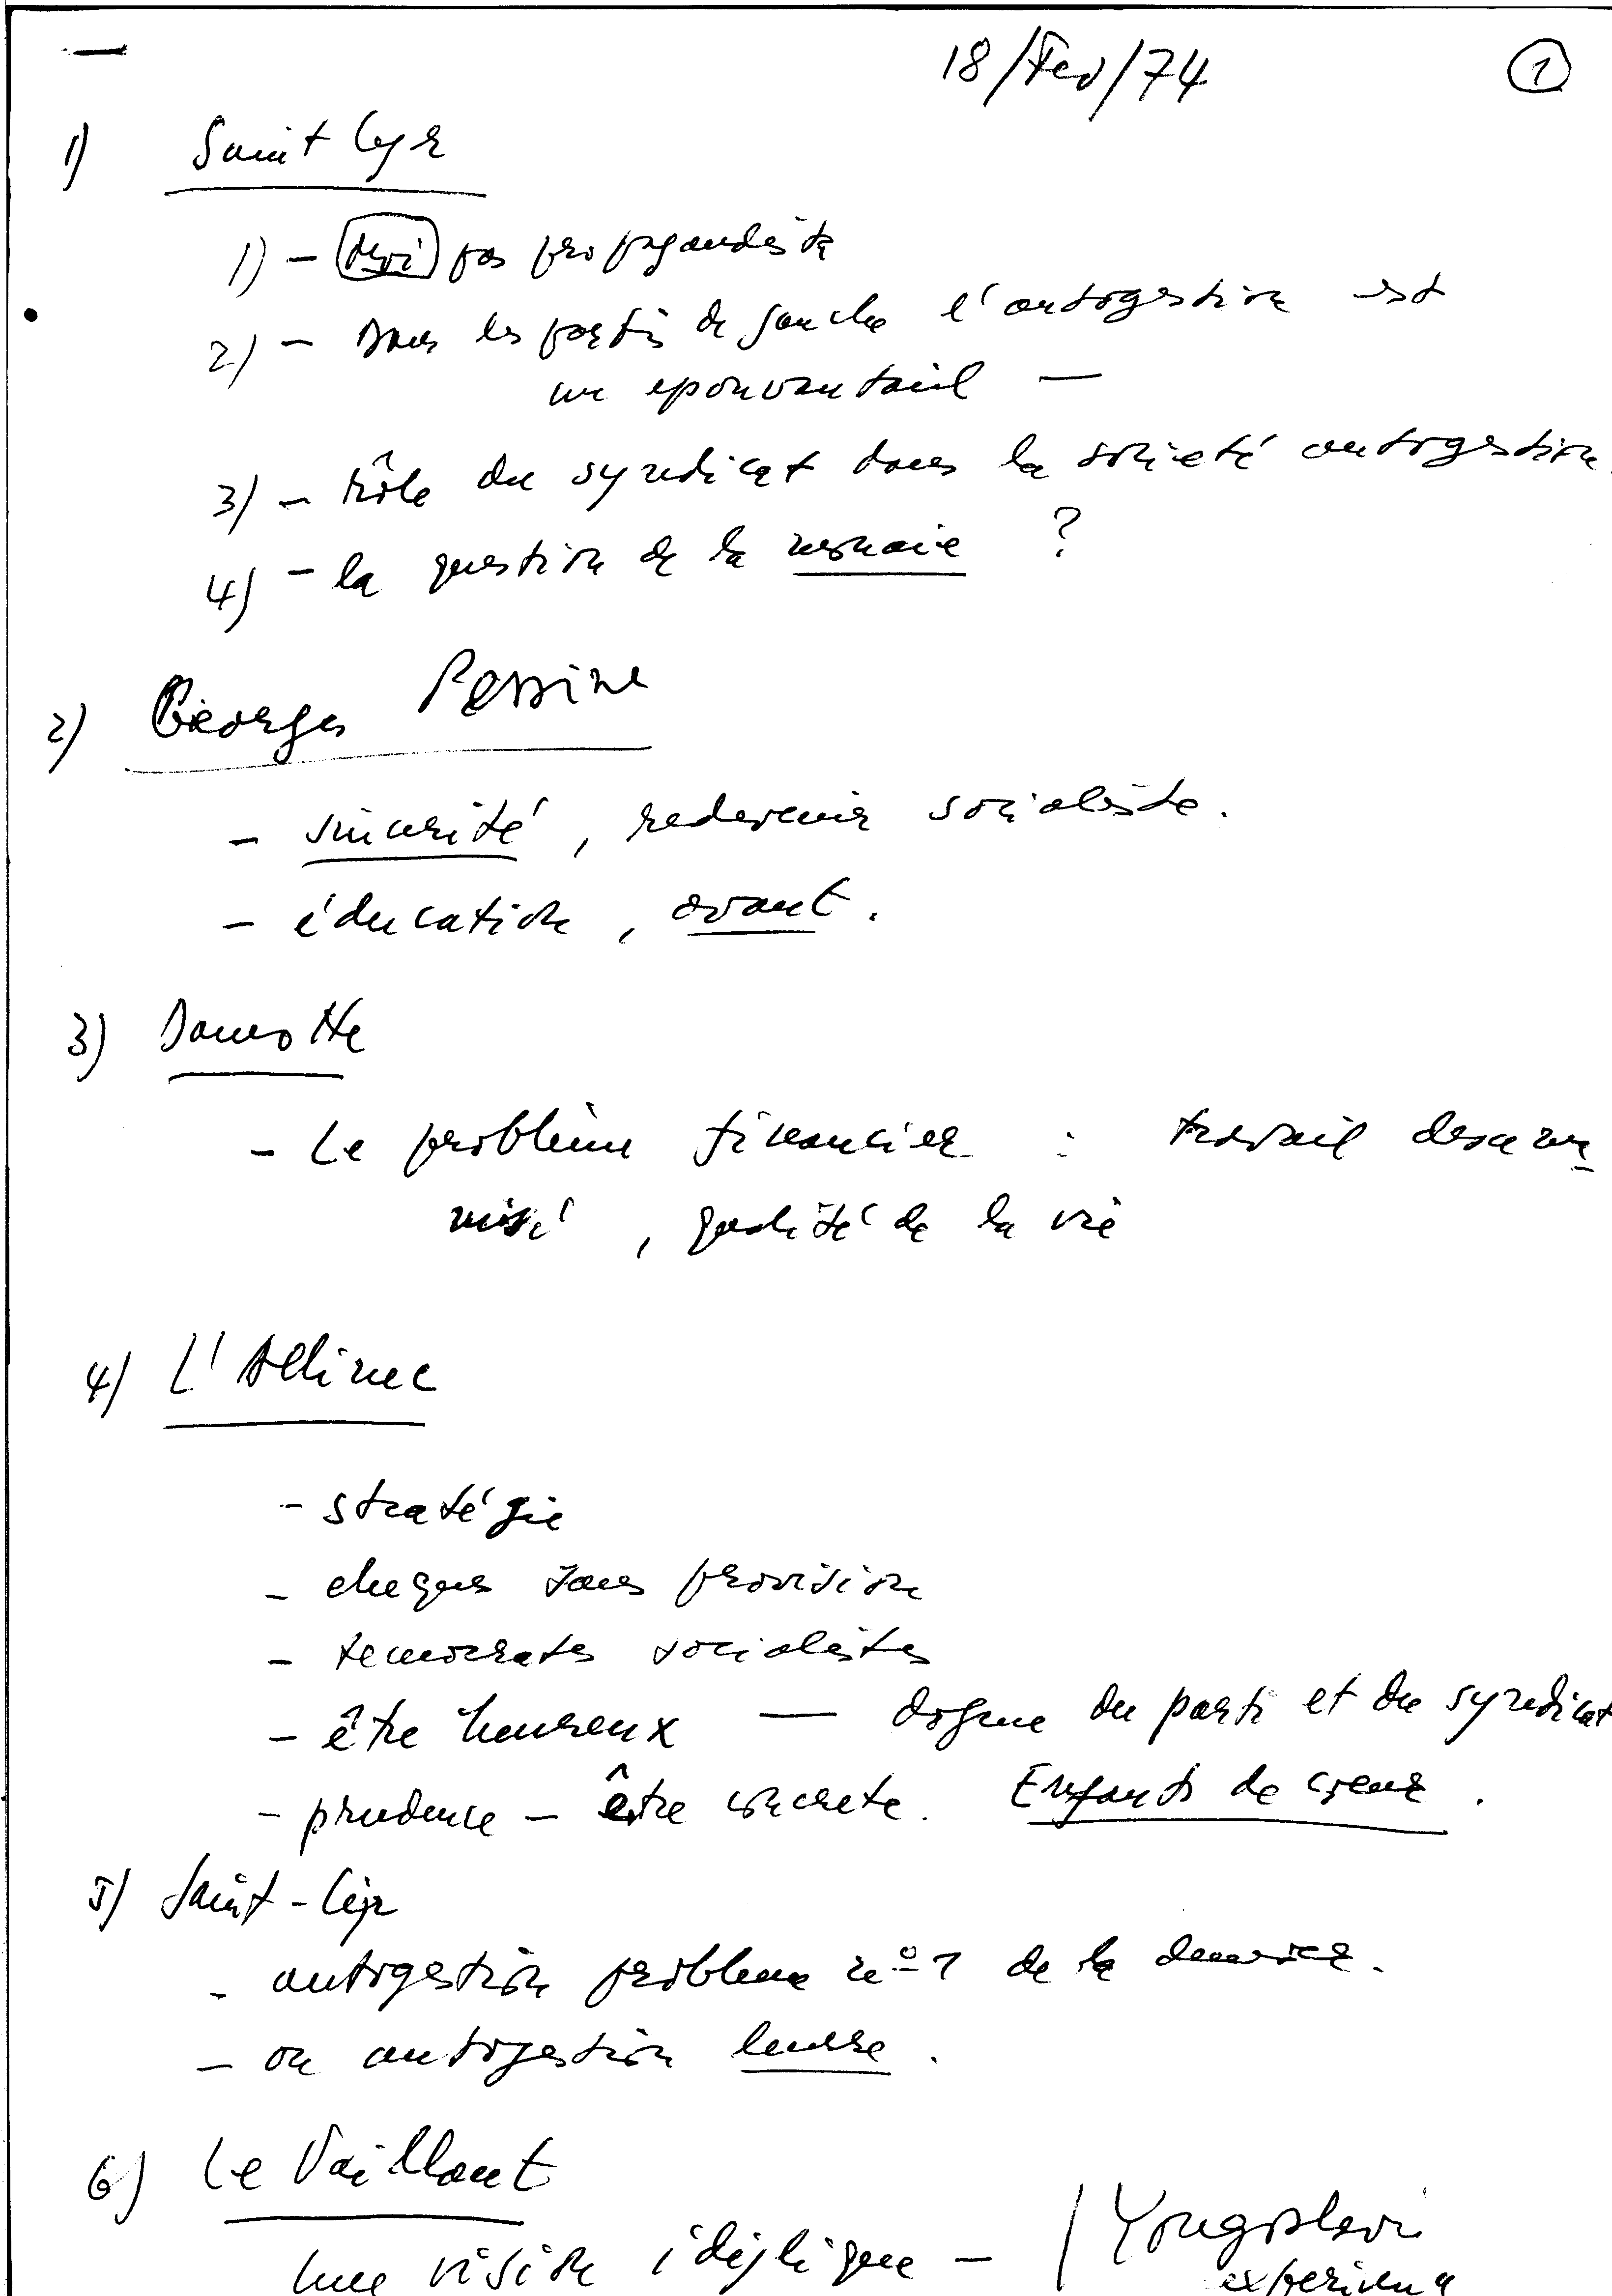 18/Fev/74 ①
1) Saint Cyr
1) – moi pas propagandiste
2) – Dans les partis de gauche l'autogestion est
un epouvantail —
3) – rôle du syndicat dans la société autogestion
4) – la question de la monaie ?
2) Georges
– sincérité, redevenir socialiste.
– éducation, avant.
3)
– Le problème financier : travail
, qualité de la vie
4) L'
– stratégie
– cheques sans provision
– socialistes
– être heureux — dogme du parti et du syndicat
– prudence – être concrete. Enfants de cœur.
5) Saint-Cyr
– autogestion probleme nº 1 de la
– ou autogestion leurre.
6) Le Vaillant
Une vision idylique – / Yougoslavi
experience